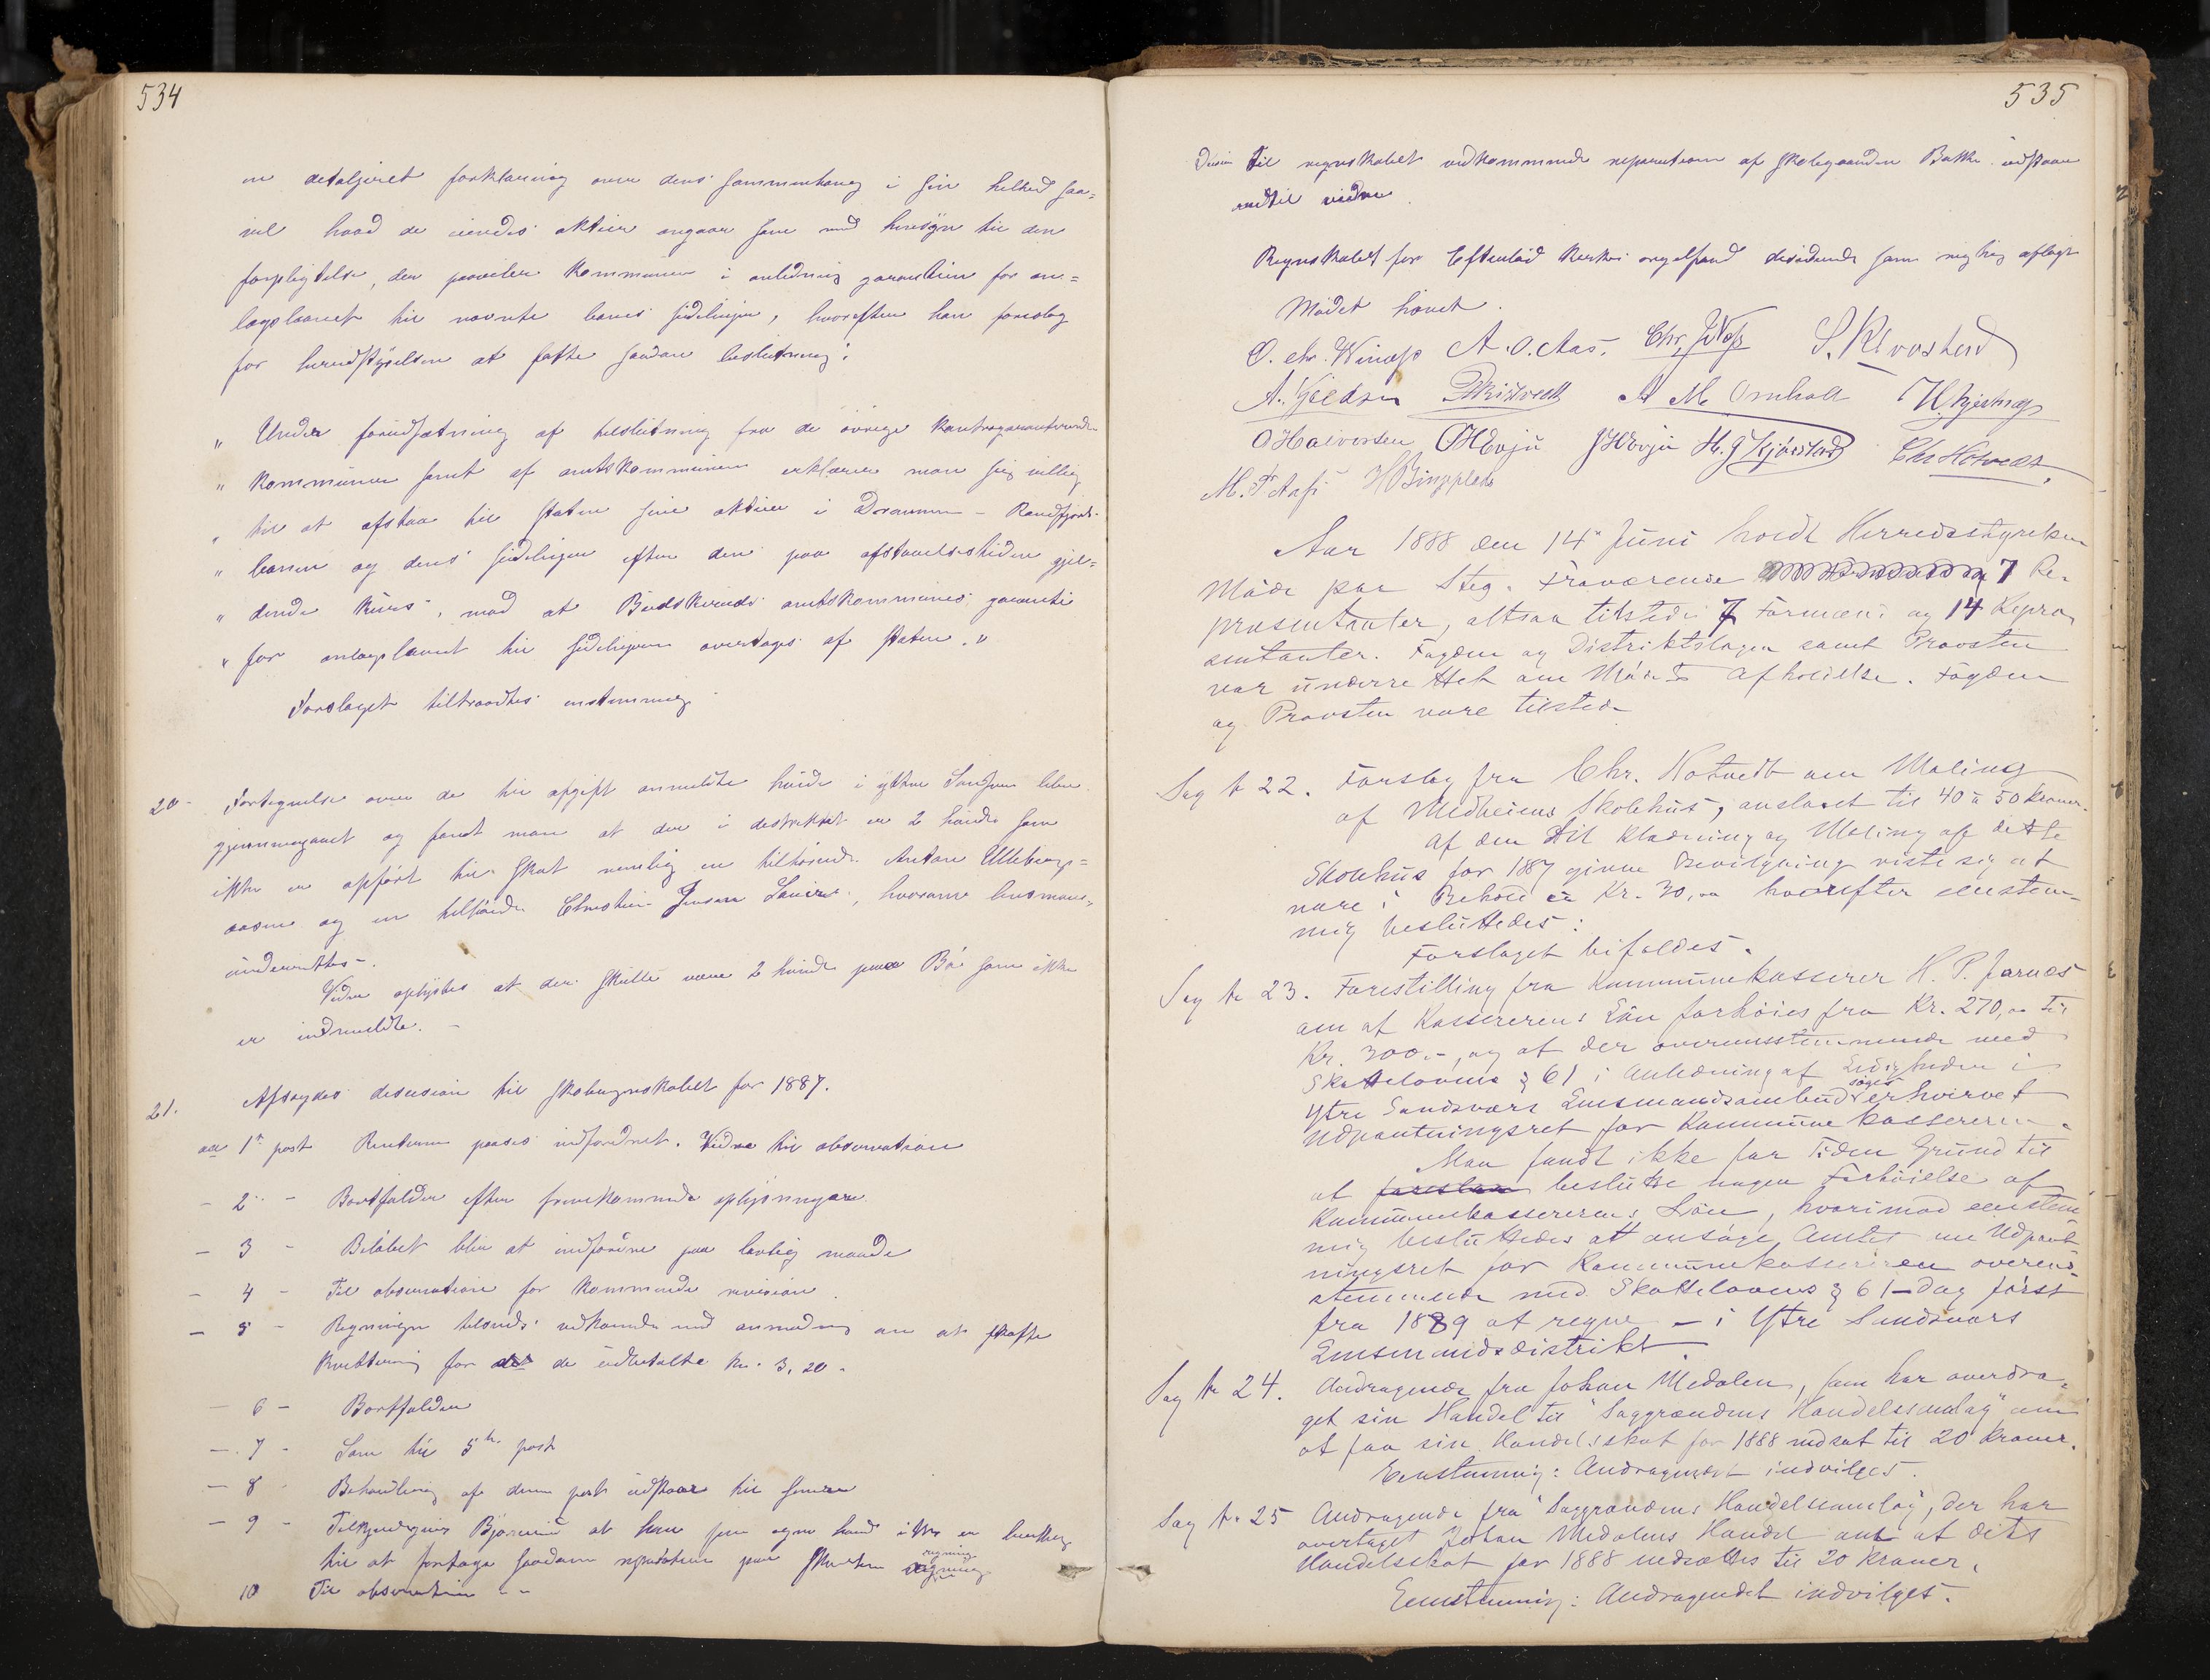 534
en detaljeret forklaring over dens sammenhæng i sin helhed saa=
vel hvad de eiendes aktier angaar som med hensyn til den
forpligtelse, der paaviler kommunen i anledning garantien for an=
lægslaanet til nævnte banes sidelinjen, hvorefter han foreslog
for herredstyrelsen at fatte saadan beslutning:
„ Under forudsætning af tilslutning fra de övrige
„ kommuner samt af amtskommunen erklærer man sig villig
„ til at afstaa til staten sine aktier i Drammen - Randsfjord-
„ banen og dens sidelinjer efter den paa afstaaelsestiden gjæl=
„ dende kurs, mod at Buskeruds amtskommunes garanti
„ for anlægslaanet til sidelinjen overtages af staten. "
Forslaget tiltraadtes enstemmig.
20 - Fortegnelse over de til afgift anmeldte hunde i ytre Sandsvær blev
gjennemgaaet og fandt man at der i distriktet er 2 hunde som
ikke er opfört til skat nemlig en tilhörende Anton Ulleberg=
aasen og en tilhörende Christian Jensen, hvorom lensmand
underrettes -.
Videre oplystes at der skulde være 2 hunde paa Bö som ikke
er indmeldte. -
21. Afsagdes desision til skoleregnskabet for 1887.
ad 1ste post Renterne paases indfordret. Videre til observation
- 2 - Bortfalder efter fremkomne oplysninger.
- 3 - Belöbet blir at indföre paa lovlig maade
- 4 - Til observation for kommende revision.
- 5 - Regningen tilsendes vedkommende med anmodning om at skaffe
kvittering for de udbetalte kr. 3,20.
- 6 - Bortfalder
- 7 - Som til 5te post
- 8 - Behandling af denne post udstaar til senere
- 9 - Björnerud at han for egen haand ikke er berettiget
til at foretage saadan reparation paa skolens regning
10 Til observation - -
535
Desision til regnskabet vedkommende reparation af skolegaarden Bakke udstaar
indtil videre.
Regnskabet for Efteløt kirkes orgelfond desideredes som rigtig aflagt
Mödet hævet.
O. Chr. Winæss A. O. Aas. Chr. S. Klovstad
A. Gjeldsen A M Omholt
O Halvorsen O H Evju J H Evju H. J Chr Hotvedt
M. T. Aass H Bingeplads
Aar 1888 den 14de Juni holdt Herredsstyrelsen
Möde paa Steg. Fraværende 7 Re-
præsentanter, altsaa tilstede 7 Formænd og 14 Repræ-
sentanter. Fogden og Distriktslægen samt Provsten
var underrettet om Mödets Afholdelse. Fogden
og Provsten vare tilstede
Sag № 22. Forslag fra Chr. Hotvedt om Maling
af Medheiens Skolehus, anslaaet til 40 à 50 Kroner.
Af den til Klædning og Maling af dette
Skolehus for 1887 givne Bevilgning viste sig at
være i Behold ca Kr. 30,00 hvorefter eenstem-
mig besluttedes:
Forslaget bifaldes.
Sag № 23. Forestilling fra Kommunekasserer H. P. Jarnæs
om at Kassererens Lön forhöies fra Kr. 270,00 til
Kr. 300.-, og at der overensstemmende med
Skattelovens § 61 i Anledning af Ledigheden i
Ytre Sandsværs Lensmandsombud söges erhvervet
Udpantningsret for Kommunekassereren.
Man fandt ikke for Tiden Grund til
at foreslaa beslutte nogen Forhöielse af
Kommunekassererens Lön, hvorimod eenstem
mig besluttedes at ansöge Amtet om Udpant
ningsret for Kommunekassereren overens-
stemmende med Skattelovens § 61 - dog först
fra 1889 at regne - i Ytre Sandsværs
Lensmandsdistrikt.
Sag № 24. Andragende fra Johan Medalen, som har overdra-
get sin Handel til "Laggrændens Handelssamlag" om
at faa sin Handelsskat for 1888 nedsat til 20 Kroner.
Eenstemmig: Andragendet indvilges.
Sag № 25 Andragende fra "Laggrændens Handelssamlag", der har
overtaget Johan Medalens Handel om at dets
Handelsskat for 1888 nedsættes til 20 Kroner.
Eenstemmig: Andragendet indvilges.